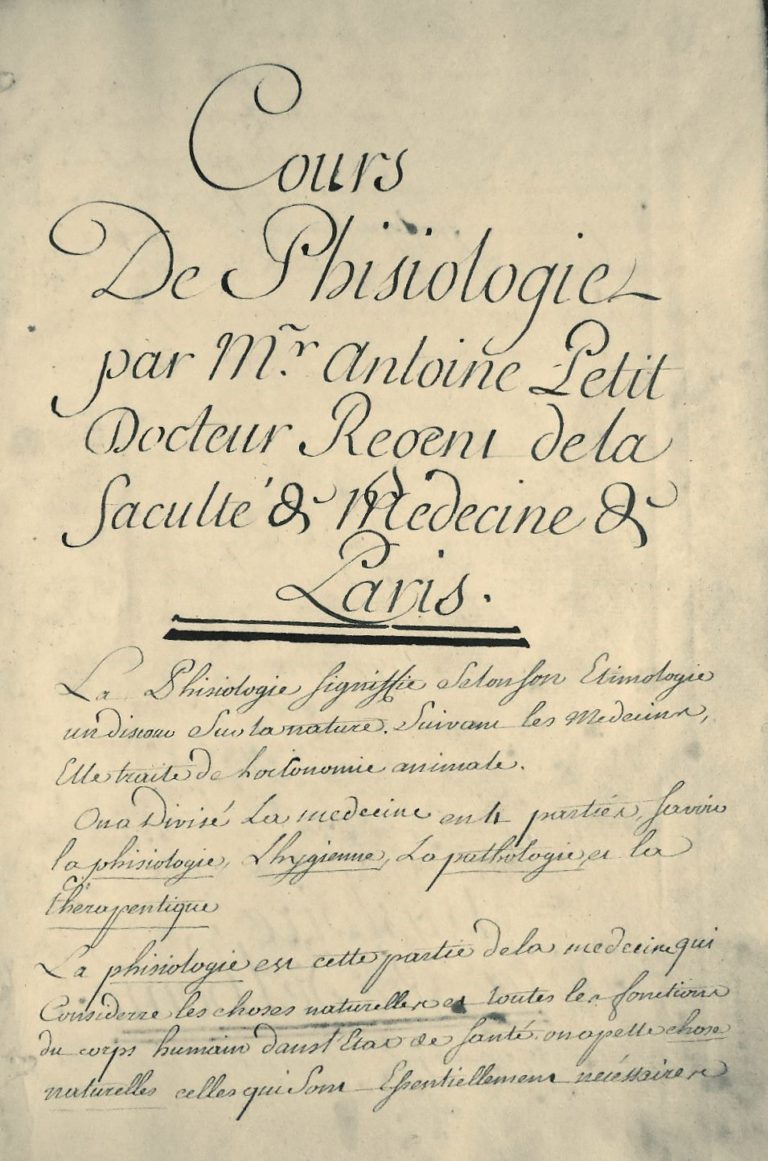 Cours
De Phisiologie
par Mr. Antoine Petit
Docteur Regent de la
faculté de Medecine de
Paris.
La Phisiologie signiffie Selon son Etimologie
un discour Sur la nature. Suivant les Medecins,
Elle traite de l'oeconomie animale.
On a Divisé La medecine en 4 parties, savoir
la phisiologie, Lhygienne, La pathologie, et la
Thérapeutique
La phisiologie est cette partie de la medecine qui
Considerre les choses naturelles et toutes les fonctions
du corps humain dans l'Etat de santé. on apelle chose
naturelles celles qui Sont Essentiellement nécéssaires